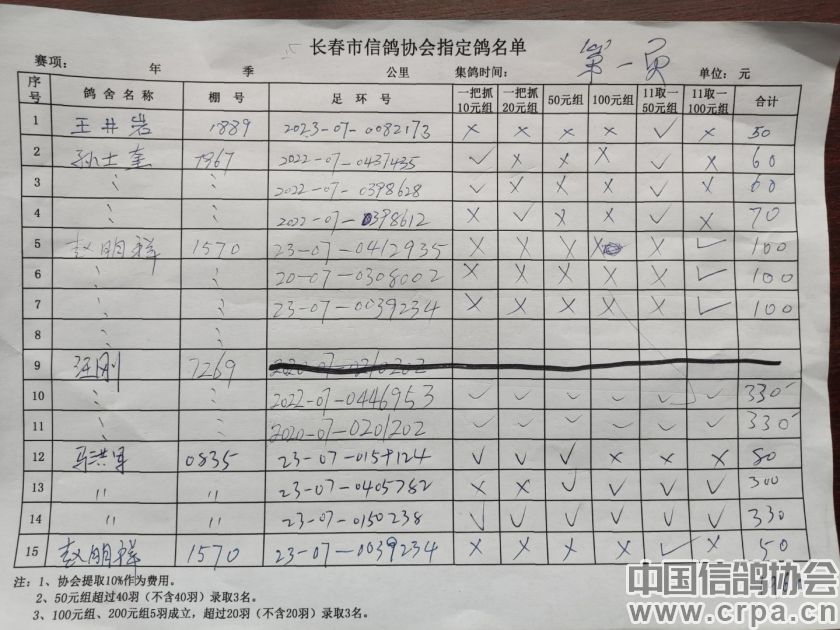 长春市信鸽协会指定鸽名单 第一页
赛项： 年 季 公里 集鸽时间： 单位：元
序号 鸽舍名称 棚号 足环号 一把抓10元组 一把抓20元组 50元组 100元组 11取一50元组 11取一100元组 合计
1 王井岩 1889 2023-07-0082173 × × × × ✓ × 50
2 孙士奎 1967 2022-07-0437435 ✓ × × × ✓ × 60
3 〃 〃 2022-07-0398628 ✓ × × × ✓ × 60
4 〃 〃 2022-07-0398612 × ✓ × × ✓ × 70
5 赵明祥 1570 23-07-0412935 × × × × × ✓ 100
6 〃 〃 20-07-0308002 × × × × × ✓ 100
7 〃 〃 23-07-0039234 × × × × × ✓ 100
8 〃 〃
9 汪刚 7269
10 〃 〃 2022-07-0446953 ✓ ✓ ✓ ✓ ✓ ✓ 330
11 〃 〃 2020-07-0201202 ✓ ✓ ✓ ✓ ✓ ✓ 330
12 马洪军 0835 ✓ ✓ ✓ × × × 80
13 〃 〃 23-07-0405782 × × ✓ ✓ ✓ ✓ 300
14 〃 〃 23-07-0150238 ✓ ✓ ✓ ✓ ✓ ✓ 330
15 赵明祥 1570 23-07-0039234 × × × × ✓ × 50
注：1、协会提取10%作为费用。
2、50元组超过40羽（不含40羽）录取3名。
3、100元组、200元组5羽成立，超过20羽（不含20羽）录取3名。
中国信鸽协会
www.crpa.cn